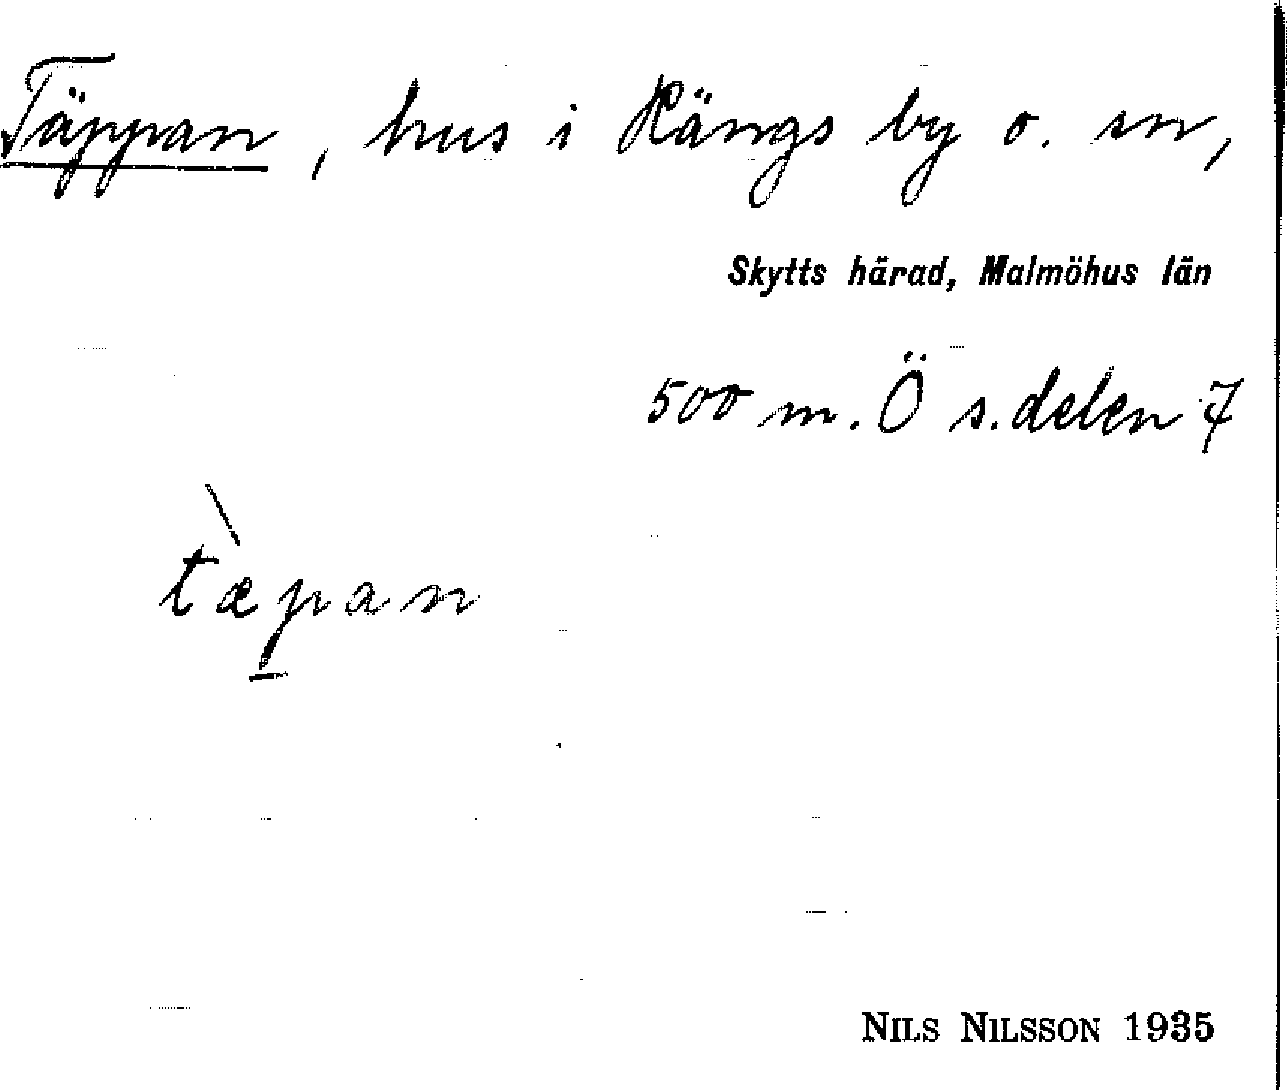 Täppan, hus i Rängs by o. sn,
Skytts härad, Malmöhus län
500 m. Ö s.delen 7
tæ̀p̲an
NILS NILSSON 1935